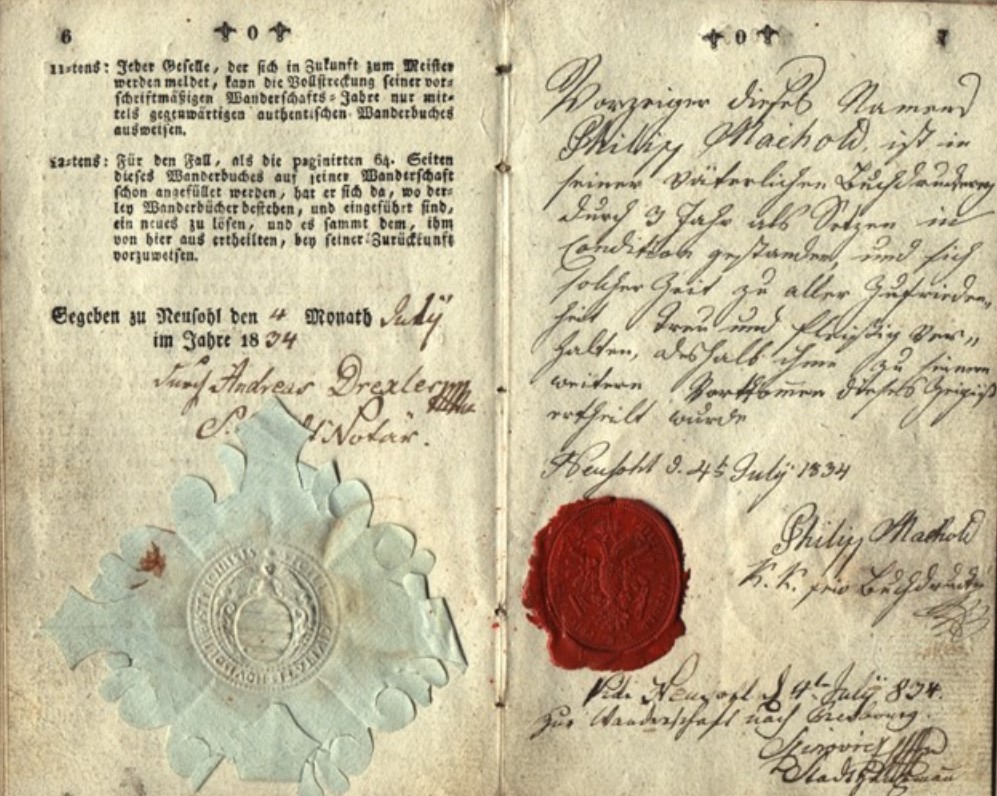 6
0
11-tens: Jeder Geselle, der sich in Zukunft zum Meister
werden meldet, kann die Vollstreckung seiner vor-
schriftmäßigen Wanderschafts-Jahre nur mit-
tels gegenwärtigen authentischen Wanderbuches
ausweisen.
12-tens: Für den Fall, als die paginirten 64. Seiten
dieses Wanderbuches auf seiner Wanderschaft
schon angefüllet werden, hat er sich da, wo der-
ley Wanderbücher bestehen, und eingeführt sind,
ein neues zu lösen, und es sammt dem, ihm
von hier aus ertheilten, bey seiner Zurückkunft
vorzuweisen.
Gegeben zu Neusohl den 4 Monath July
im Jahre 1834
durch Andreas Drexler
Notär.
0
7
Vorzeiger dieses Namens
Philipp Machold, ist in
seiner väterlichen Buchdruckerey
durch 3 Jahr als Setzer in
Condition gestanden, und sich
solcher Zeit zu aller Zufrieden-
heit treu und fleißig ver-
halten, deshalb ihm zu seinem
weitern Vortkommen dieses Zeigniß
ertheilt wurde
Neusohl d. 4t July 1834
Philipp Machold
K. K. priv Buchdrucker
Vidi Neusohl d 4te July 834.
Zur Wanderschaft nach
Stadthauptmann